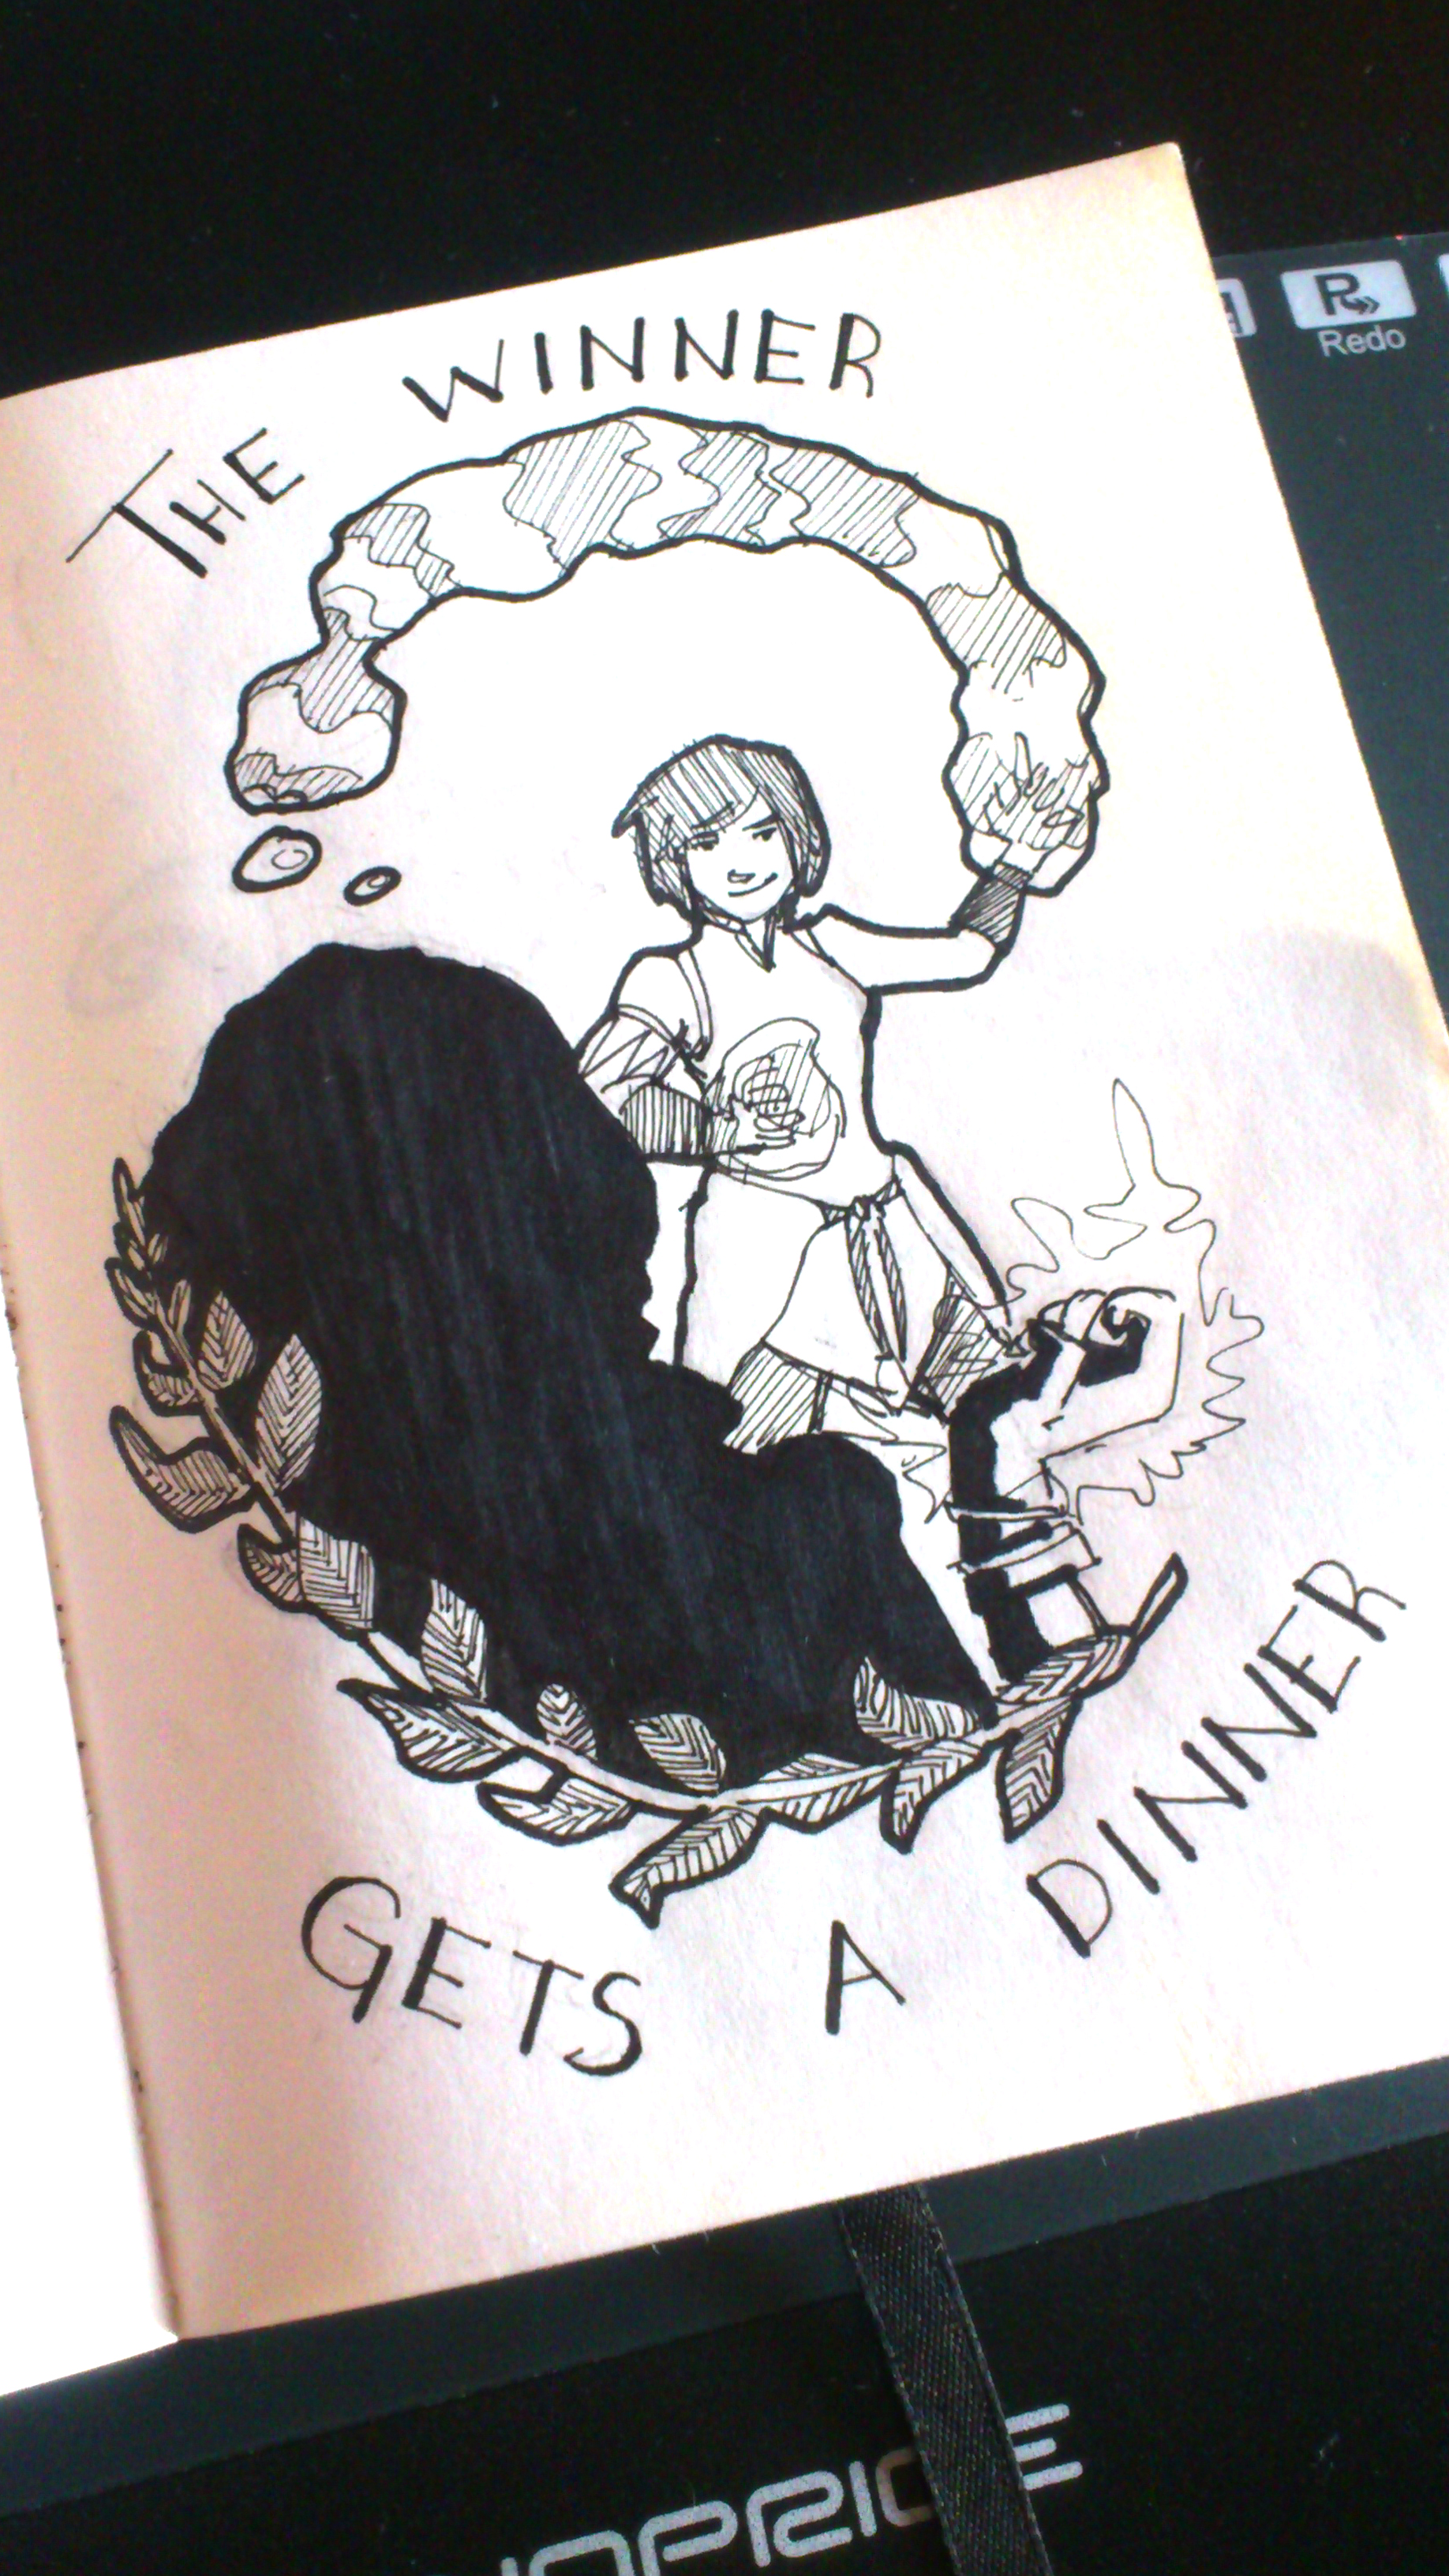 THE WINNER
GETS A DINNER
R
Redo
OPRICE